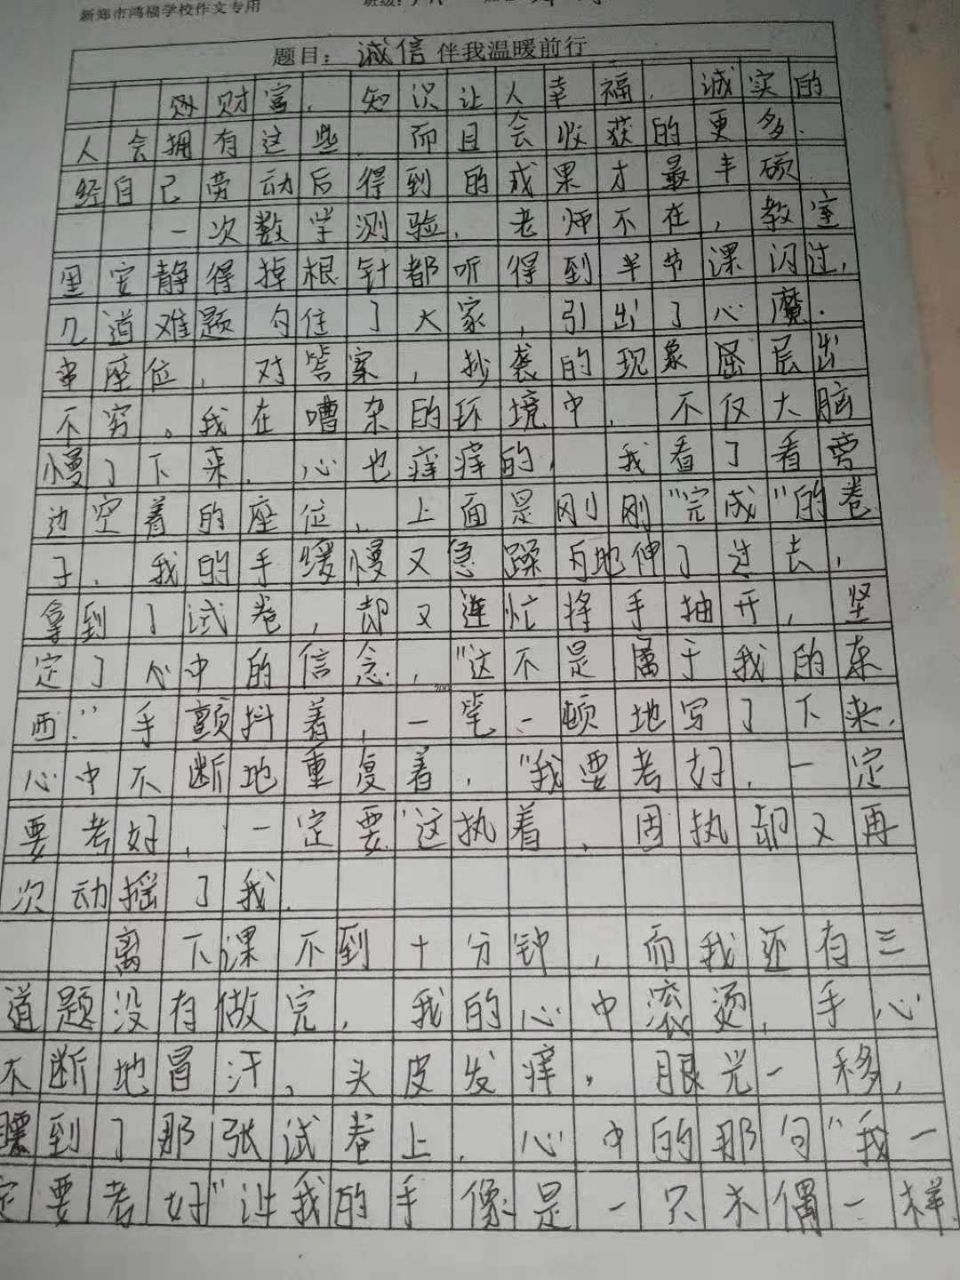 新郑市鸿福学校作文专用
题目：诚信伴我温暖前行
财富，知识让人幸福，诚实的
人会拥有这些，而且会收获的更多．
经自己劳动后得到的成果才最丰硕．
一次数学测验，老师不在，教室
里安静得掉根针都听得到半节课闪过，
几道难题勾住了大家，引出了心魔．
串座位，对答案，抄袭的现象层层出
不穷。我在嘈杂的环境中，不仅大脑
慢了下来，心也痒痒的，我看了看旁
边空着的座位，上面是刚刚"完成"的卷
子，我的手缓慢又急躁的地伸了过去，
拿到了试卷，却又连忙将手抽开，坚
定了心中的信念，"这不是属于我的东
西．"手颤抖着，一笔一顿地写了下来．
心中不断地重复着，"我要考好，一定
要考好，一定要"这执着，固执却又再
次动摇了我．
离下课不到十分钟，而我还有三
道题没有做完，我的心中滚烫，手心
不断地冒汗，头皮发痒，眼光一移，
到了那张试卷上，心中的那句"我一
定要考好"让我的手像是一只木偶一样